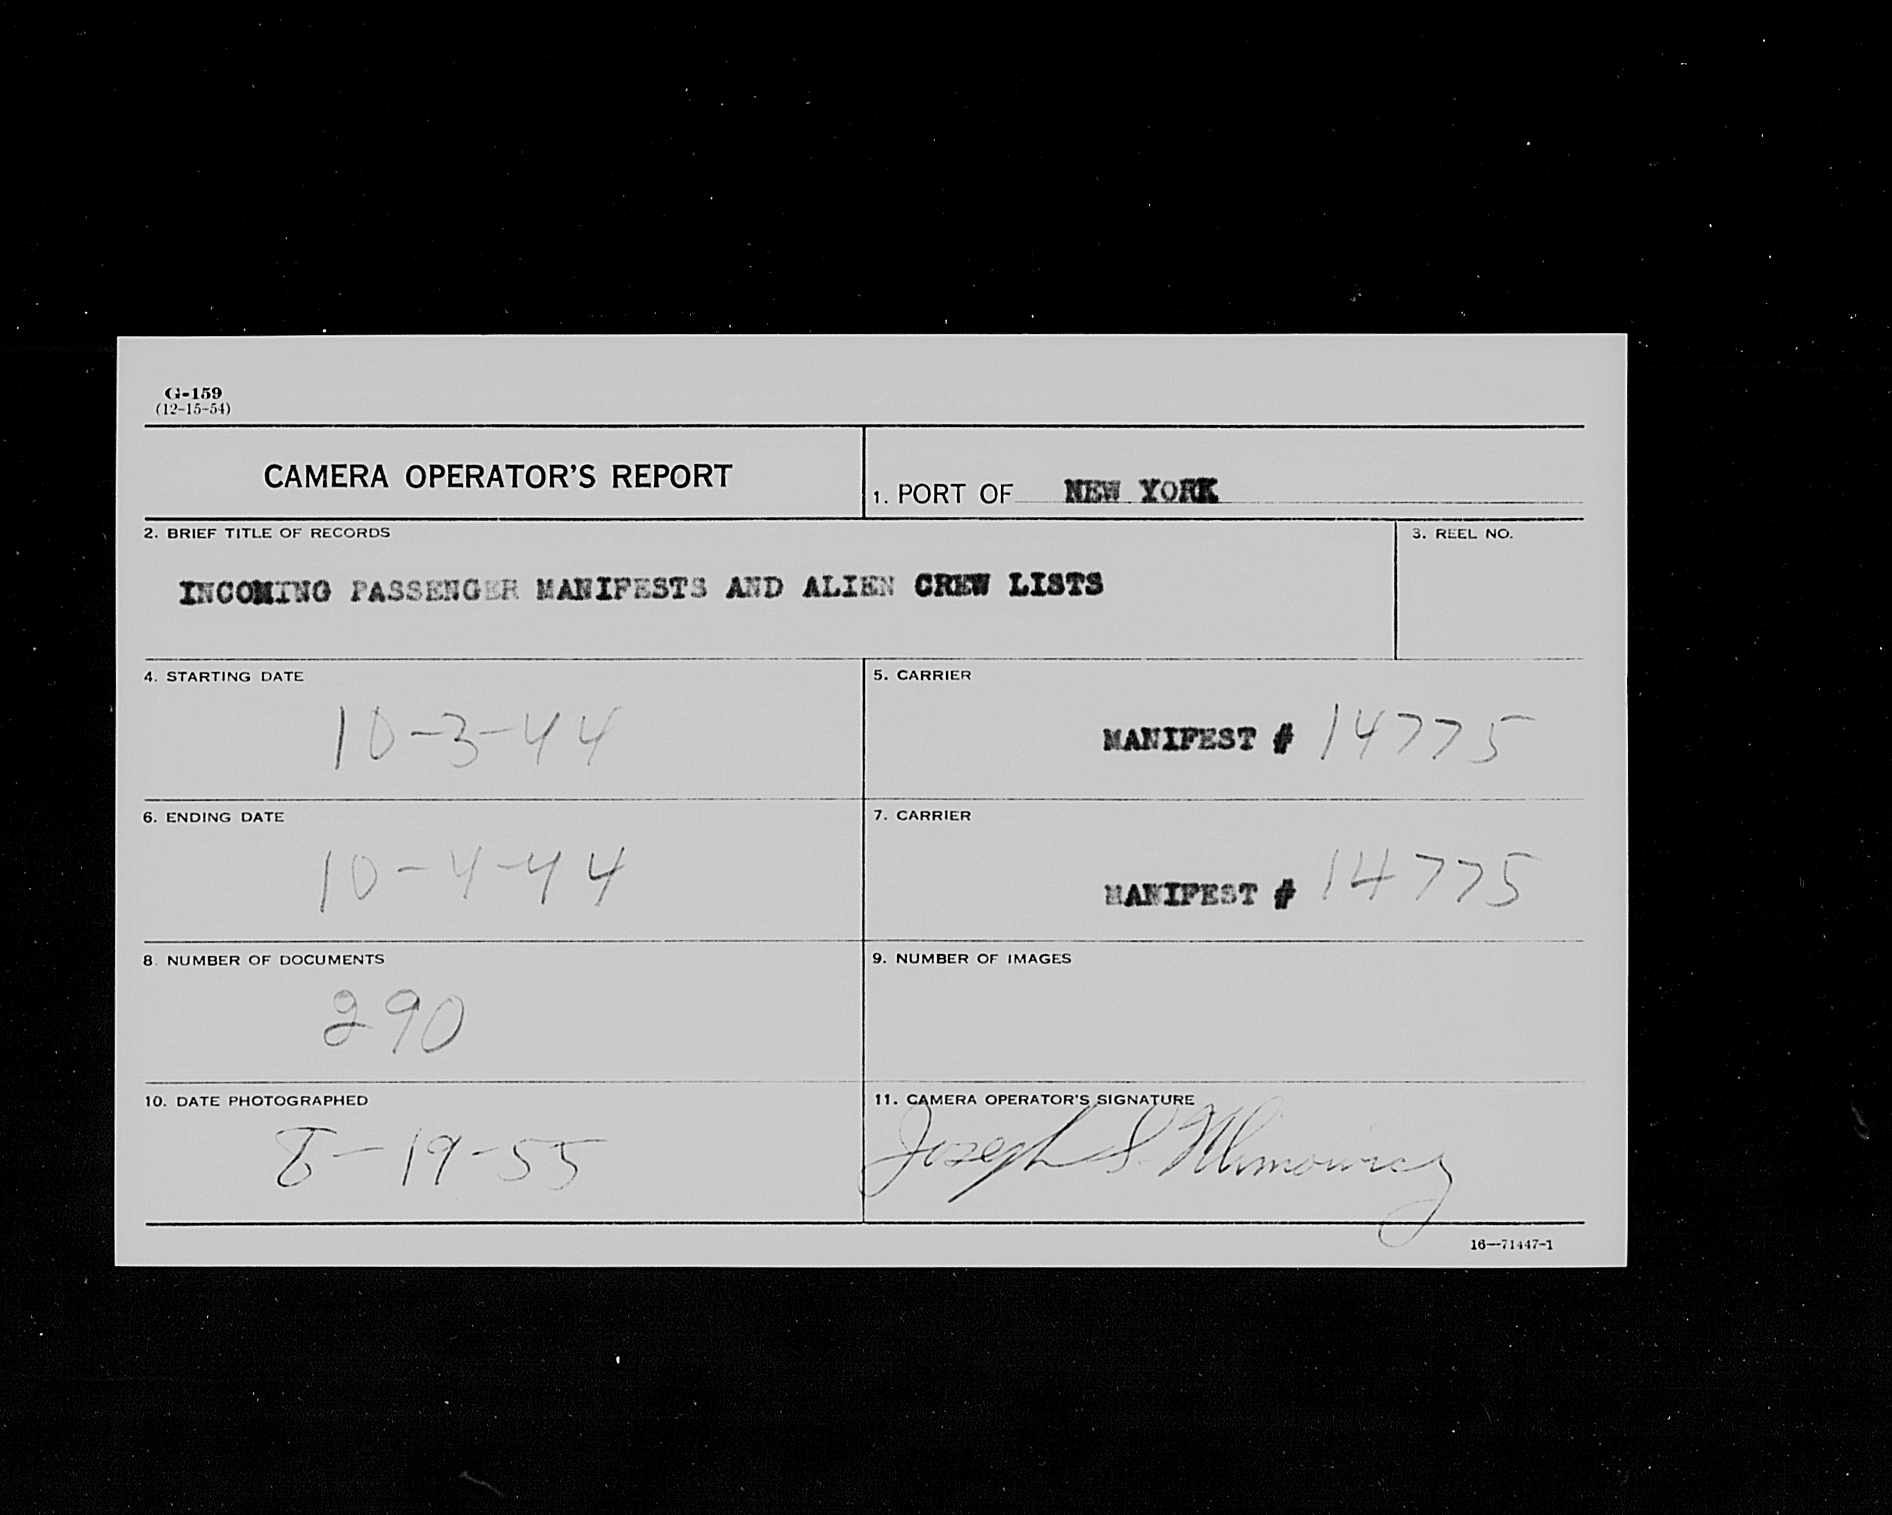 G-159
(12-15-54)
CAMERA OPERATOR'S REPORT
1. PORT OF NEW YORK
2. BRIEF TITLE OF RECORDS
3. REEL NO.
INCOMING PASSENGER MANIFESTS AND ALIEN CREW LISTS
4. STARTING DATE
5. CARRIER
10-3-44
MANIFEST # 14775
6. ENDING DATE
7. CARRIER
10-4-44
MANIFEST # 14775
8. NUMBER OF DOCUMENTS
9. NUMBER OF IMAGES
290
10. DATE PHOTOGRAPHED
11. CAMERA OPERATOR'S SIGNATURE
8-19-55
Joseph S.
16—71447-1